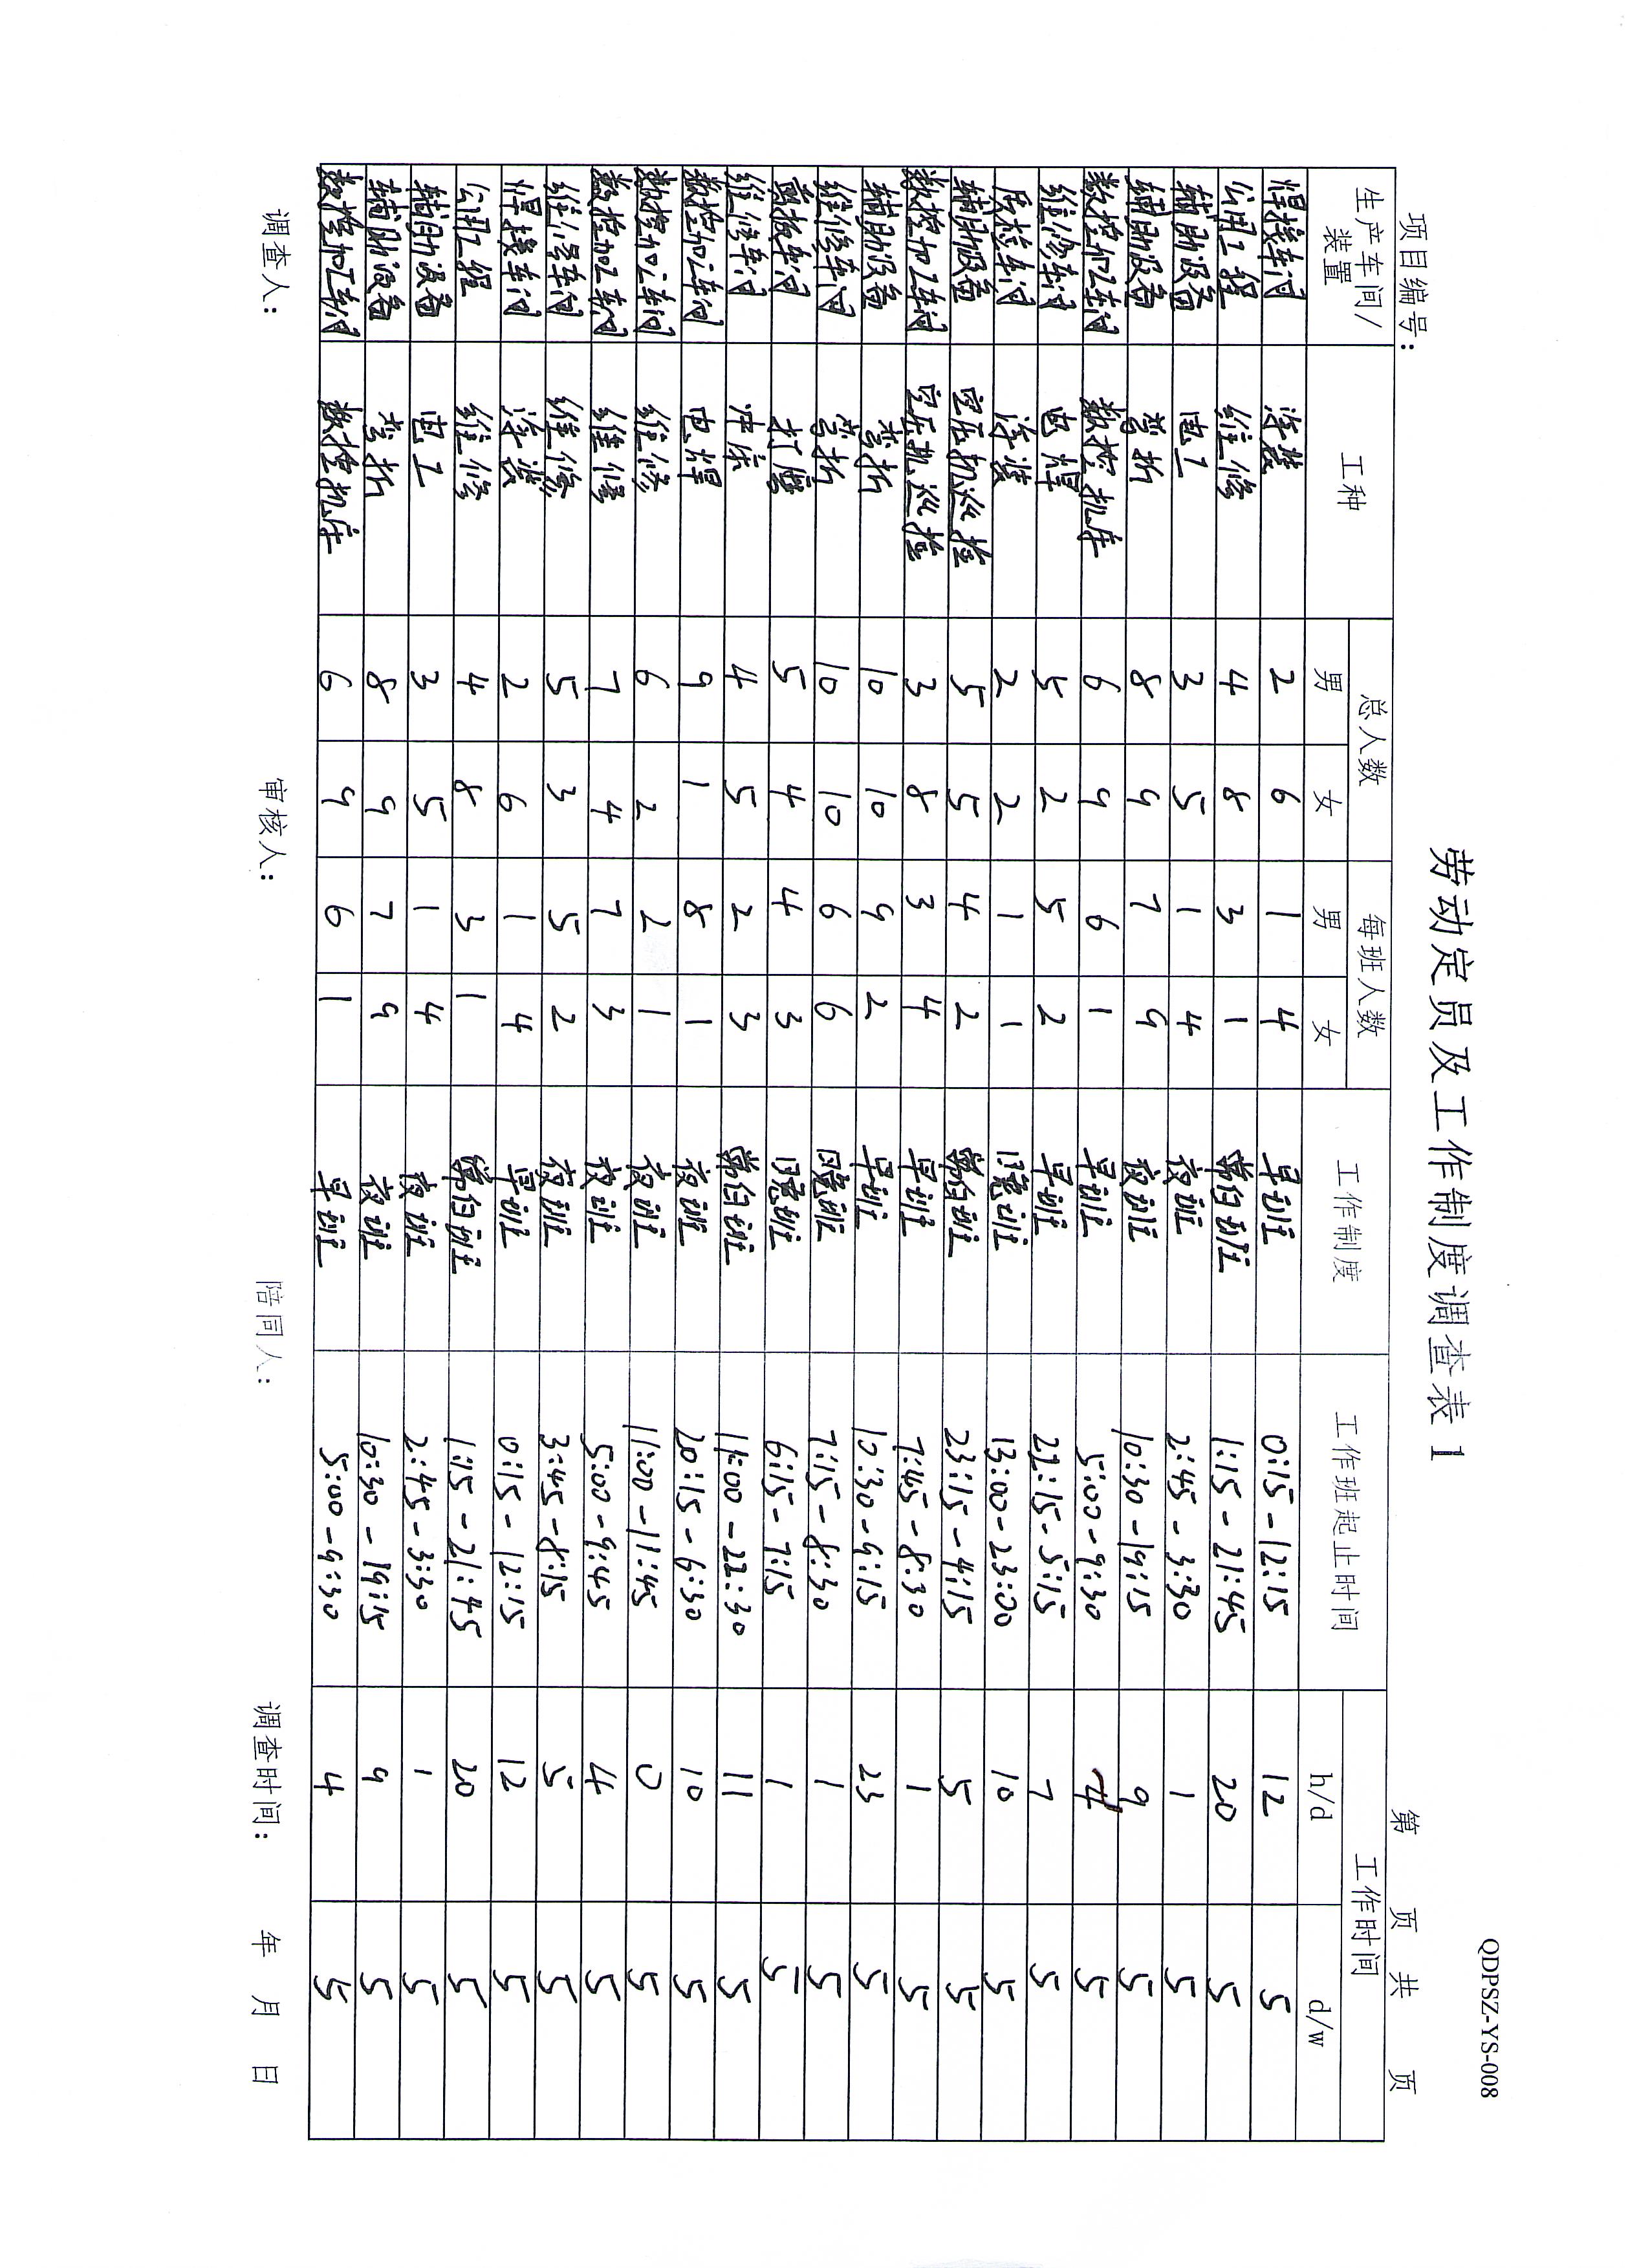 QDPSZ-YS-008
劳动定员及工作制度调查表1
项目编号： 第 页 共 页
生产车间/装置 工种 总人数 每班人数 工作制度 工作班起止时间 工作时间
男 女 男 女 h/d d/w
焊接车间 涂装 2 6 1 4 早班 0:15-12:15 12 5
公用工程 维修 4 8 3 1 常白班 1:15-21:45 20 5
辅助设备 电工 3 5 1 4 夜班 2:45-3:30 1 5
辅助设备 弯折 8 9 7 9 夜班 10:30-19:15 9 5
数控加工车间 数控机床 6 9 6 1 早班 5:00-9:30 4 5
维修车间 电焊 5 2 5 2 早班 22:15-5:15 7 5
质检车间 涂装 2 2 1 1 晚班 13:00-23:00 10 5
辅助设备 空压机巡检 5 5 4 2 常白班 23:15-4:15 5 5
数控加工车间 空压机巡检 3 8 3 4 早班 7:45-8:30 1 5
辅助设备 弯折 10 10 9 2 早班 10:30-9:15 23 5
维修车间 弯折 10 10 6 6 晚班 7:15-8:30 1 5
剪板车间 打磨 5 4 4 3 晚班 6:15-7:15 1 5
维修车间 冲床 4 5 2 3 常白班 11:00-22:30 11 5
数控加工车间 电焊 9 1 8 1 夜班 20:15-6:30 10 5
数控加工车间 维修 6 2 2 1 夜班 11:00-11:45 0 5
数控加工车间 维修 7 4 7 3 夜班 5:00-9:45 4 5
维修车间 维修 5 3 5 2 夜班 3:45-8:15 5 5
焊接车间 涂装 2 6 1 4 早班 0:15-12:15 12 5
公用工程 维修 4 8 3 1 常白班 1:15-21:45 20 5
辅助设备 电工 3 5 1 4 夜班 2:45-3:30 1 5
辅助设备 弯折 8 9 7 9 夜班 10:30-19:15 9 5
数控加工车间 数控机床 6 9 6 1 早班 5:00-9:30 4 5
调查人： 审核人： 陪同人： 调查时间： 年 月 日